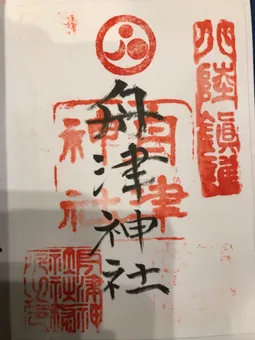 北陸鎮護
舟津神社
舟津神社